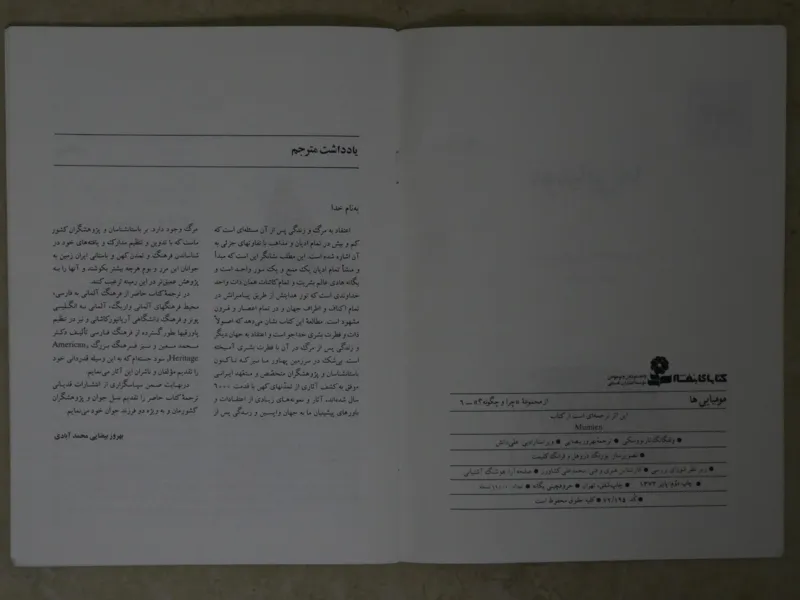 یادداشت مترجم
به‌نام خدا
اعتقاد به مرگ و زندگی پس از آن مسئله‌ای است که
کم و بیش در تمام ادیان و مذاهب با تفاوتهای جزئی به
آن اشاره شده است. این مطلب نشانگر این است که مبدأ
و منشأ تمام ادیان یک منبع و یک نور واحد است و
یگانه هادی عالم بشریت و تمام کائنات همان ذات واحد
خداوندی است که نور هدایتش از طریق پیامبرانش در
تمام اکناف و اطراف جهان و در تمام اعصار و قرون
مشهود است. مطالعهٔ این کتاب نشان می‌دهد که اصولاً
ذات و فطرت بشری خداجو است و اعتقاد به جهان دیگر
و زندگی پس از مرگ در آن با فطرت بشری آمیخته
است. بی‌شک در سرزمین پهناور ما نیز که تاکنون
باستانشناسان و پژوهشگران متخصص و متعهد ایرانی
موفق به کشف آثاری از تمدنهای کهن با قدمت ۹۰۰۰
سال شده‌اند، آثار و نمونه‌های زیادی از اعتقادات و
باورهای پیشینیان ما به جهان واپسین و زندگی پس از
مرگ وجود دارد. بر باستانشناسان و پژوهشگران کشور
ماست که با تدوین و تنظیم مدارک و یافته‌های خود در
شناساندن فرهنگ و تمدن کهن و باستانی ایران زمین به
جوانان این مرز و بوم هرچه بیشتر بکوشند و آنها را به
پژوهش عمیق‌تر در این زمینه ترغیب کنند.
در ترجمهٔ کتاب حاضر از فرهنگ آلمانی به فارسی؛
محیط، فرهنگهای آلمانی واریگ، آلمانی به انگلیسی
پونز و فرهنگ دانشگاهی آریانپورکاشانی و نیز در تنظیم
پاورقیها بطور گسترده از فرهنگ فارسی تألیف دکتر
محمد معین و نیز فرهنگ بزرگ American
Heritage، سود جسته‌ام که به این وسیله قدردانی خود
را تقدیم مؤلفان و ناشران این آثار می‌نمایم.
درنهایت ضمن سپاسگزاری از انتشارات قدیانی
ترجمهٔ کتاب حاضر را تقدیم نسل جوان و پژوهشگران
کشورمان و به ویژه دو فرزند جوان خود می‌نمایم.
بهروز بیضایی محمد آبادی
کتابهای بنفشه
مومیایی ها
از مجموعهٔ «چرا و چگونه؟» ــ ۹
این اثر ترجمه‌ای است از کتاب
Mumien
● ولفگانگ تارنووسکی ● ترجمه بهروز بیضایی ● ویراستار ادبی: علی دانش
● زیر نظر شورای بررسی ● کارشناس هنری و فنی: محمدعلی کشاورز ● صفحه آرا: هوشنگ آشتیانی
● چاپ دوم: پاییز ۱۳۷۳ ● تهران ● حروفچینی یگانه
● کلیه حقوق محفوظ است